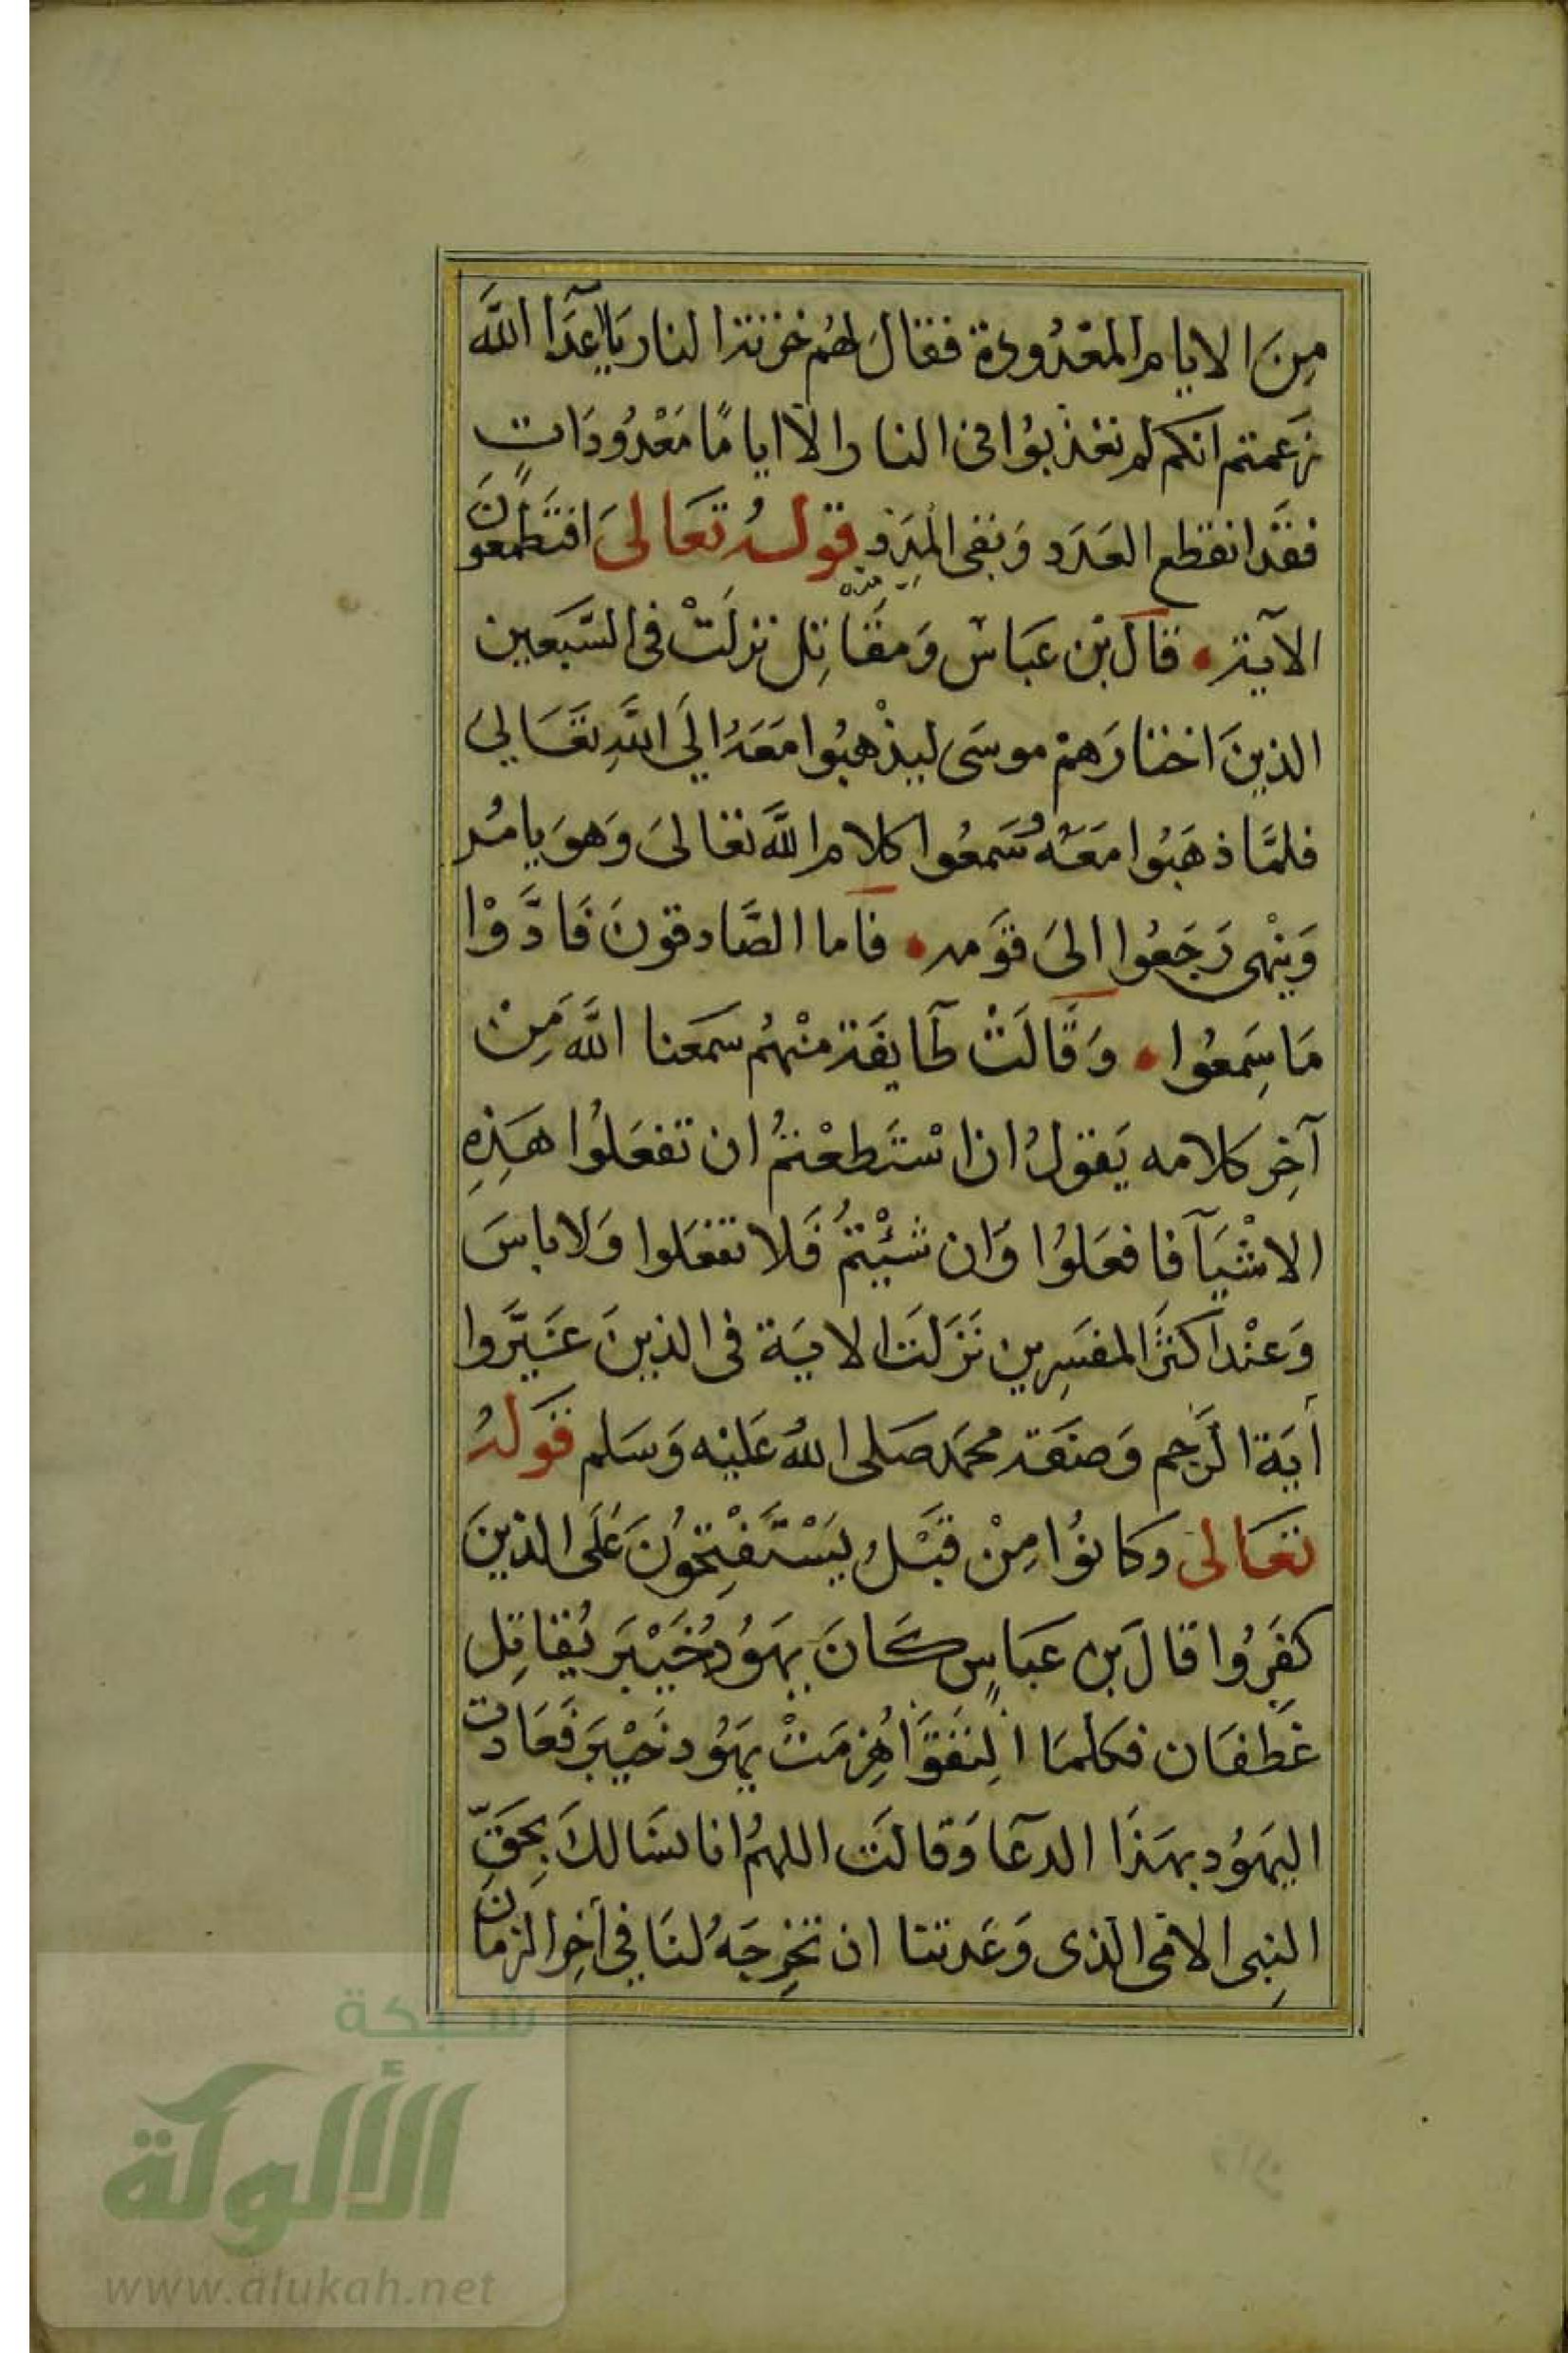 مِنَ الايام المعْدُودة فقالَ لهُم خزنة النار يَا اعَدَآ اللَّه
زَعمتم انكم لم تعذبوُا في النار الا ايامًا مَعْدُودَاتٍ
فقَد انقطع العَدَد وَبَقى قولهُ تعَالىَ افتَطْمَعُونَ
الآية • قال بْن عَبَاسْ وَمقَاتِل نزلَتْ فى السَّبَعين
الذينَ اختارَهمْ موسَى ليذْهبُوا مَعَهُ اليَ اللَّهِ تعَالي
فلمَّا ذهَبُوا مَعَهُ سَمعُوا كلام اللَّه تعالىَ وَهوَ يامُر
وَينْهى رَجَعُوا الىَ قوَمه • فاما الصَّادقونَ فَادَّوْا
مَا سِمعُوا • وَقَالَتْ طَايفَة منْهُم سمَعنا اللَّه مِنْ
آخِر كلامه يَقولُ ان اسْتَطعْتمُ ان تفعَلوُا هَذِهِ
الاشْيَآ فافعَلوُا وَان شئْيتمُ فَلا تفعَلوا وَلا باسَ
وَعنْد اكثَر المفسَرِين نَزَلَت الايَة فى الذينَ غَيَّروا
أيَة الرَجم وَصفَة محمَد صَلى اللهُ عَليْه وَسَلم قوَلهُ
تعَالى وَكانوُا مِنْ قبَْلُ يَسْتَفْتِحُونَ عَلَى الذينَ
كفَرُوا قالَ بن عَبَاسٍ كَانَ يهَوُدُ خَيْبَر يُقاتِل
غَطفَان فكلمَا التَقَوَا هُزِمَتْ يهَوُد خَيْبَر فَعَادت
اليَهوُد بهَذَا الدعَآ وَقالَت اللهمُ انا نسَالكَ بِحَقِّ
النِبى الامى الذى وَعَدتنا ان تخرِجَهُ لنَا في أخِر الزمان
شبكة
الألوكة
www.alukah.net